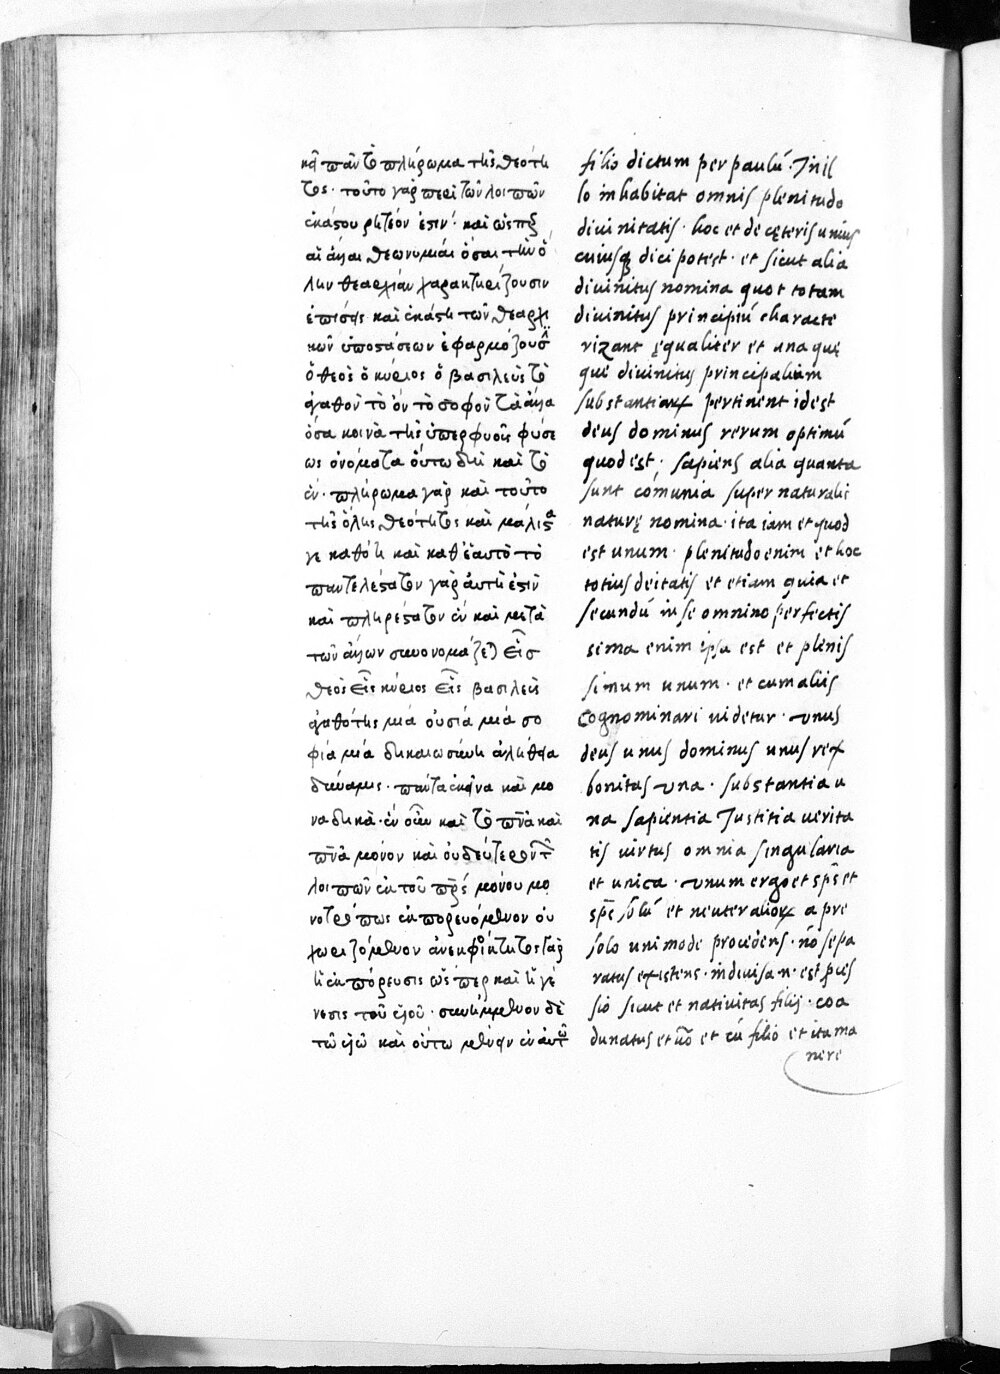 κεῖ πᾶν τὸ πλήρωμα τῆς θεότη
τος· τοῦτο γὰρ περὶ τῶν λοιπῶν
ἑκάστου ῥητέον ἐστιν· καὶ ὥσπερ
αἱ ἄλλαι θεωνυμίαι ὅσαι τὴν ὅ
λην θεαρχίαν χαρακτηρίζουσιν
ἐπίσης καὶ ἑκάστη τῶν θεαρχι
κῶν ὑποστάσεων ἐφαρμόζουσ
ὁ θεὸς ὁ κύριος ὁ βασιλεὺς τὸ
ἀγαθὸν τὸ ὂν τὸ σοφὸν τὰ ἄλλα
ὅσα κοινὰ τῆς ὑπερφυοῦς φύσε
ως ὀνόματα οὕτω δὴ καὶ τὸ
ἕν· πλήρωμα γὰρ καὶ τοῦτο
τῆς ὅλης θεότητος καὶ μάλιστα
γε καθότι καὶ καθ' ἑαυτὸ τὸ
παντελέστατον γὰρ αὐτή ἐστιν
καὶ πληρέστατον ἓν καὶ μετὰ
τῶν ἄλλων συνονομάζεται εἷς
θεὸς εἷς κύριος εἷς βασιλεὺς
ἀγαθότης μία οὐσία μία σο
φία μία δικαιωσύνη ἀλήθεια
δύναμις· πάντα ἑνιαῖα καὶ μο
ναδικὰ· ἓν οὖν καὶ τὸ πνα καὶ
πνα μόνον καὶ οὐ δεύτερον τῶν
λοιπῶν ἐκ τοῦ πρς μόνου μο
νοτρόπως ἐκπορευόμενον οὐ
χωριζόμενον ἀνεκφοίτητος γὰρ
ἡ ἐκπόρευσις ὥσπερ καὶ ἡ γέ
νεσις τοῦ υἱοῦ· συνημμένον δὲ
τῶ υἱῶ καὶ οὕτω μένειν ἐν αὐτῶ
filio dictum per paulū· In il
lo inhabitat omnis plenitudo
diuinitatis· hoc et de cęteris unius
cuiusq dici potest· et sicut alia
diuinitus nomina quot totam
diuinitus principiū characte
rizant ęqualiter et una quę
que diuinitus principaliam
substantiarum pertinent idest
deus dominus rerum optimū
quod est· sapiens alia quanta
sunt cōmunia super naturalis
naturę nomina· ita iam et quod
est unum· plenitudo enim et hoc
totius deitatis et etiam quia et
secundū in se omnino perfectis
sima enim ipsa est et plenis
simum unum· et cum aliis
cognominari uidetur· unus
deus unus dominus unus rex
bonitas una· substantia u
na sapientia Iustitia uerita
tis uirtus omnia singularia
et unica· unum ergo et sps et
sps solū et neuter aliorum a pre
solo unimode procedens· nō sepa
ratus existens· indiuisa n· est proces
sio sicut et natiuitas filij· coa
dunatus et uō et cū filio et ita ma
nere